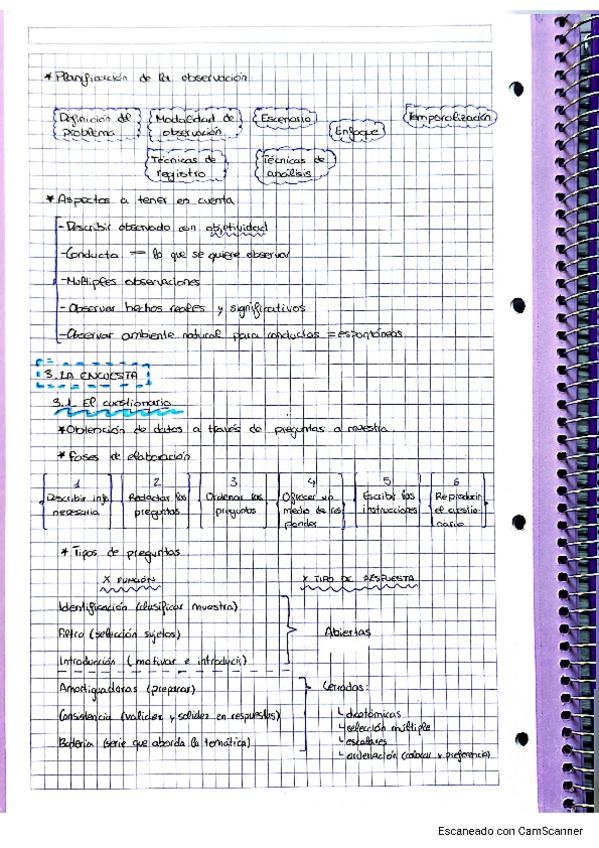 * Planificación de la observación
Definición del problema
Modalidad de observación
Escenario
Enfoque
Temporalización
Técnicas de registro
Técnicas de análisis
* Aspectos a tener en cuenta
- Describir observado con objetividad
- Conducta — lo que se quiere observar
- Múltiples observaciones
- Observar hechos reales y significativos
- Observar ambiente natural para conductas = espontáneas
3. LA ENCUESTA
3.1. El cuestionario
* Obtención de datos a través de preguntas a muestra.
* Fases de elaboración
1 Describir info necesaria
2 Redactar las preguntas
3 Ordenar las preguntas
4 Ofrecer un medio de responder
5 Escribir las instrucciones
6 Reproducir el cuestionario
* Tipos de preguntas
X FUNCIÓN
X TIPO DE RESPUESTA
Identificación (clasificar muestra)
Filtro (selección sujetos)
Introducción (motivar e introducir)
Abiertas
Amortiguadoras (preparar)
Consistencia (validez y solidez en respuestas)
Batería (serie que aborda la temática)
Cerradas:
dicotómicas
selección múltiple
escalares
ordenación (colocar x preferencia)
Escaneado con CamScanner